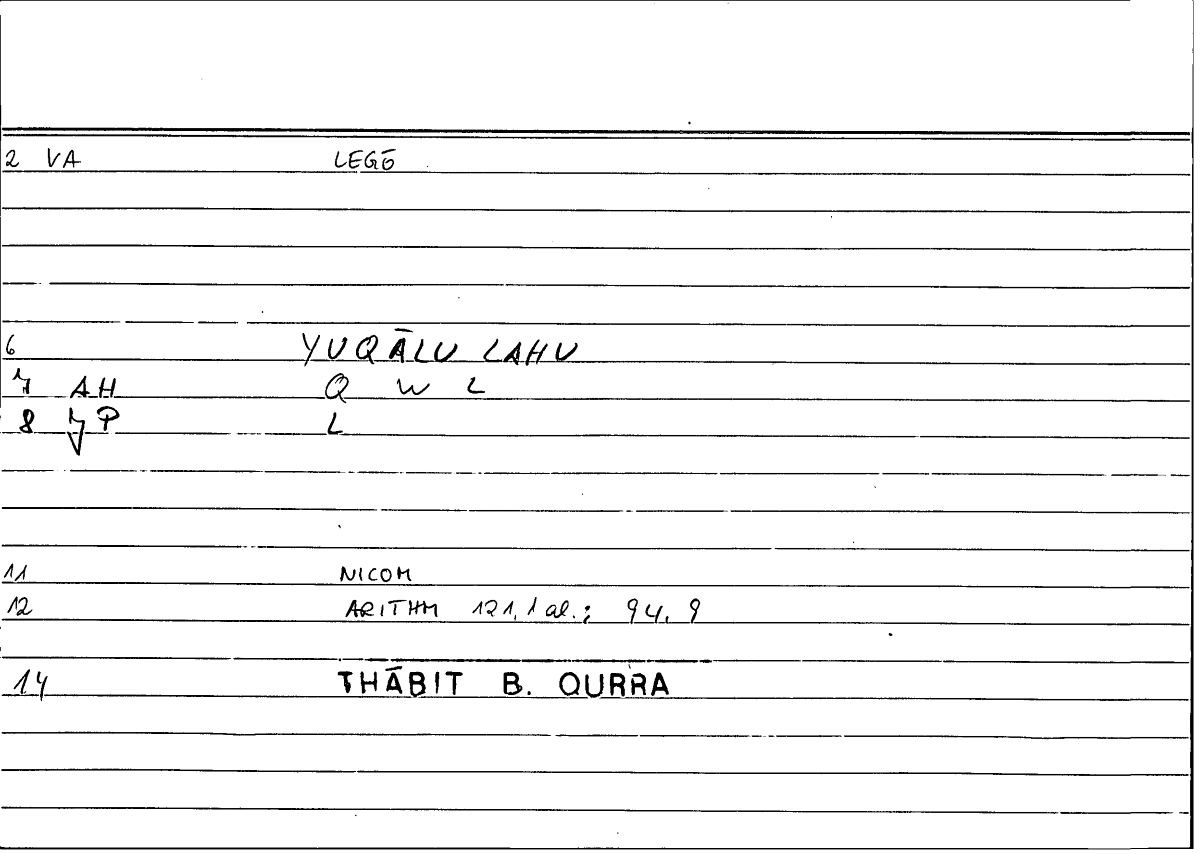 2 VA LEGŌ
6 YUQĀLU LAHU
7 AH Q W L
8 P L
11 NICOM
12 ARITHM 121,1 al.; 94,9
14 THĀBIT B. QURRA